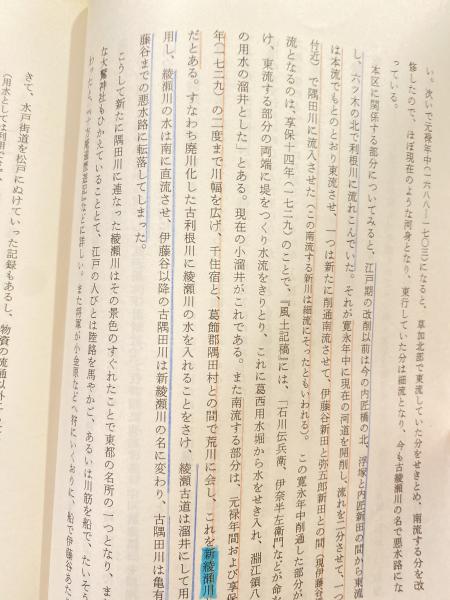 い。次いで元禄年中(一六八八―一七〇三)になると、草加北部で東流していた分をせきとめ、南流する分を改
修したので、ほぼ現在のような河身となり、東行していた分は細流となり、今も古綾瀬川の名で悪水路にな
っている。
本区に関係する部分についてみると、江戸期の改削以前は今の内匠橋の北、浮塚と内匠新田の間から東流
し、六ツ木の北で利根川に流れこんでいた。それが寛永年中に現在の河道を開削し、流れを二分させて、一つ
は本流でもとのとおり東流させ、一つは新たに削通南流させて、伊藤谷新田と弥五郎新田との間(現伊藤谷
付近)で隅田川に流入させた(この南流する新川は細流にそったともいわれる)。この寛永年中削通した部分が
流となるのは、享保十四年(一七二九)のことで、『風土記稿』には、「石川伝兵衛、伊奈半左衛門などが命
け、東流する部分の両端に堤をつくり水流をきりとり、これに葛西用水堀から水をせき入れ、淵江領八
の用水の溜井とした」とある。現在の小溜井がこれである。また南流する部分は、元禄年間および享保
年(一七二九)の二度まで川幅を広げ、千住宿と、葛飾郡隅田村との間で荒川に会し、これを新綾瀬川
だとある。すなわち廃川化した古利根川に綾瀬川の水を入れることをさけ、綾瀬古道は溜井にして用
用し、綾瀬川の水は南に直流させ、伊藤谷以降の古隅田川は新綾瀬川の名に変わり、古隅田川は亀有
藤谷までの悪水路に転落してしまった。
こうして新たに隅田川に連なった綾瀬川はその景色のすぐれたことで東都の名所の一つとなり、ま
な大鷲神社もひかえていることとて、江戸の人びとは陸路を馬やかご、あるいは川筋を船で、たいそう
などに詳しい。また将軍が小金原などへ狩にいくおりに、船で伊藤谷あた
さて、水戸街道を松戸にぬけていった記録もあるし、物資の流通以外に
(用水としては利用